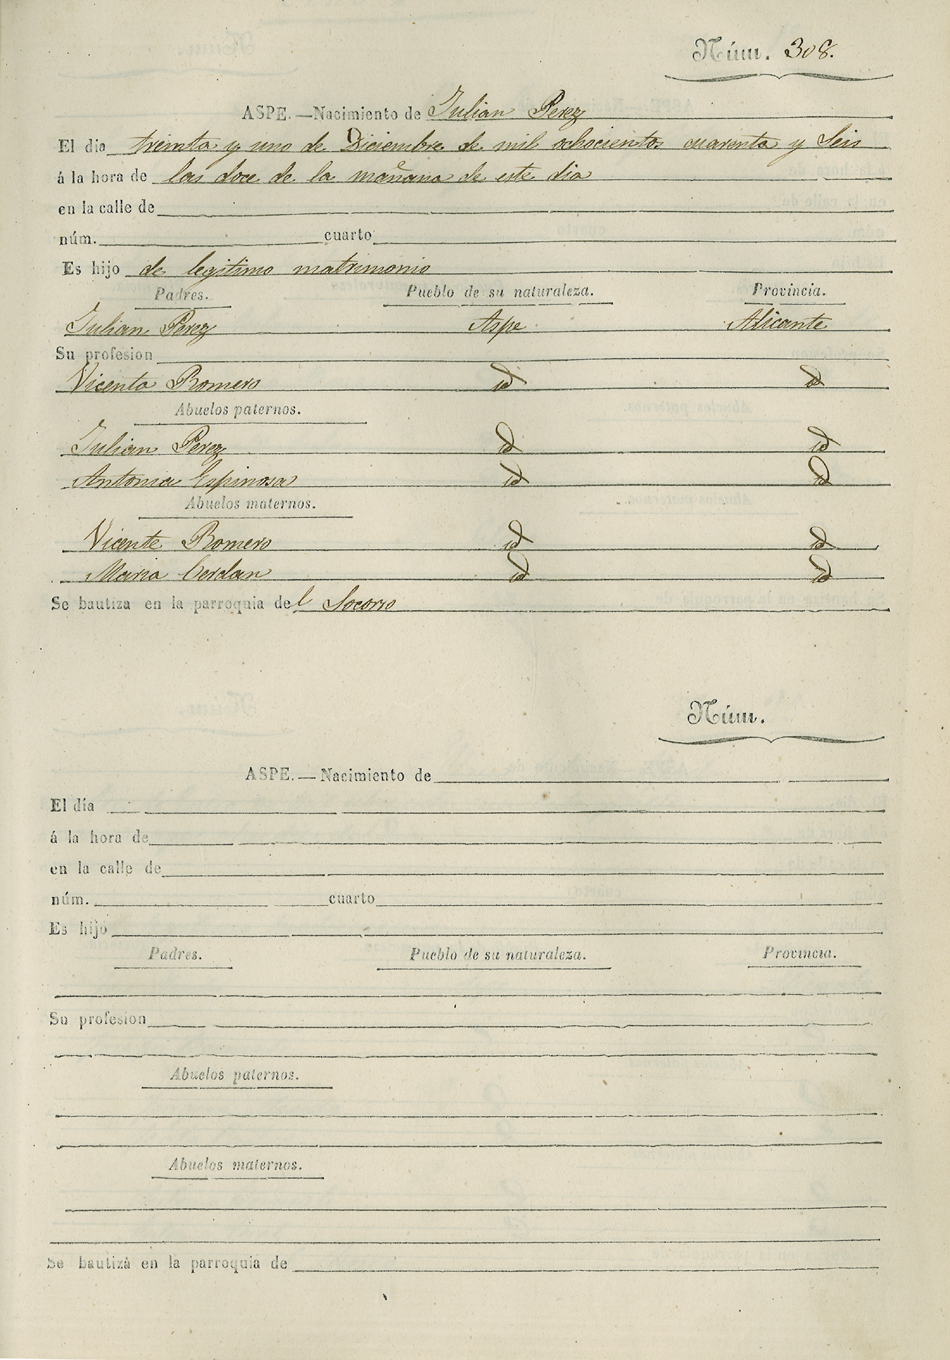 Núm. 308.
ASPE.—Nacimiento de Julian Perez
El día treinta y uno de Diciembre de mil ochocientos cuarenta y Seis
á la hora de las doce de la mañana de este dia
en la calle de
núm. cuarto
Es hijo de legitimo matrimonio
Padres. Pueblo de su naturaleza. Provincia.
Julian Perez Aspe Alicante
Su profesion
Vicenta Romero id id
Abuelos paternos.
Julian Perez id id
Antonia Espinosa id id
Abuelos maternos.
Vicente Romero id id
Maria Cerdan id id
Se bautiza en la parroquia del Socorro
Núm.
ASPE.—Nacimiento de
El día
á la hora de
en la calle de
núm. cuarto
Es hijo
Padres. Pueblo de su naturaleza. Provincia.
Su profesion
Abuelos paternos.
Abuelos maternos.
Se bautiza en la parroquia de